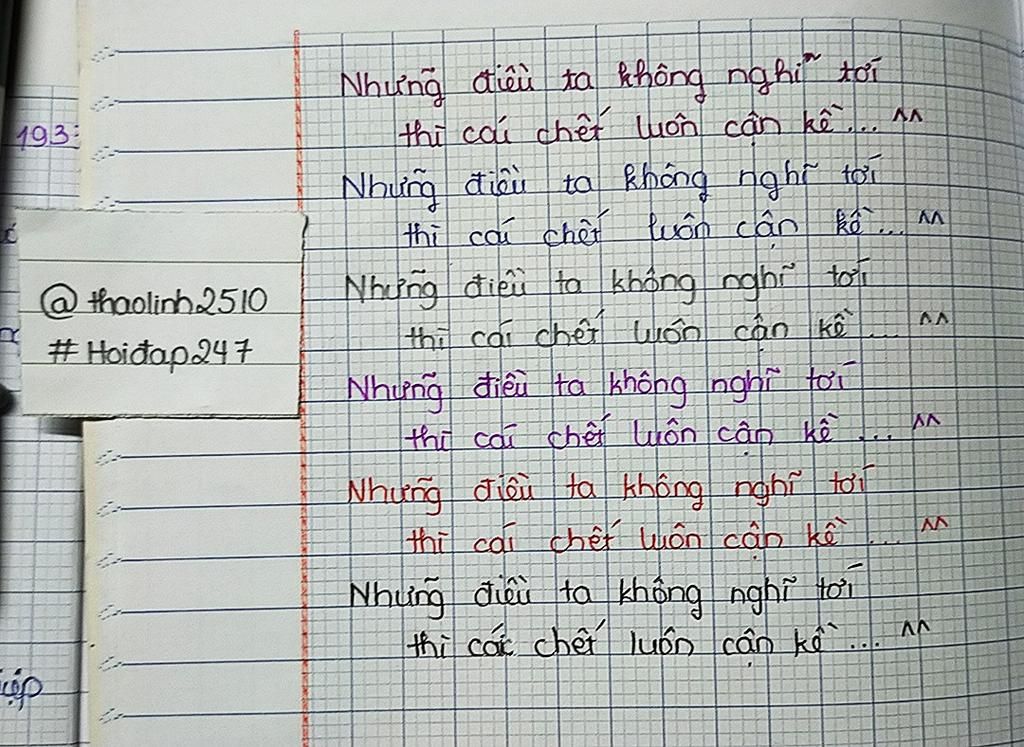 Những điều ta không nghĩ tới
thì cái chết luôn cận kề... ^^
Những điều ta không nghĩ tới
thì cái chết luôn cận kề... ^^
Những điều ta không nghĩ tới
thì cái chết luôn cận kề... ^^
Những điều ta không nghĩ tới
thì cái chết luôn cận kề... ^^
Những điều ta không nghĩ tới
thì cái chết luôn cận kề... ^^
Những điều ta không nghĩ tới
thì các chết luôn cận kề... ^^
193:
@thaolinh2510
#Hoidap247